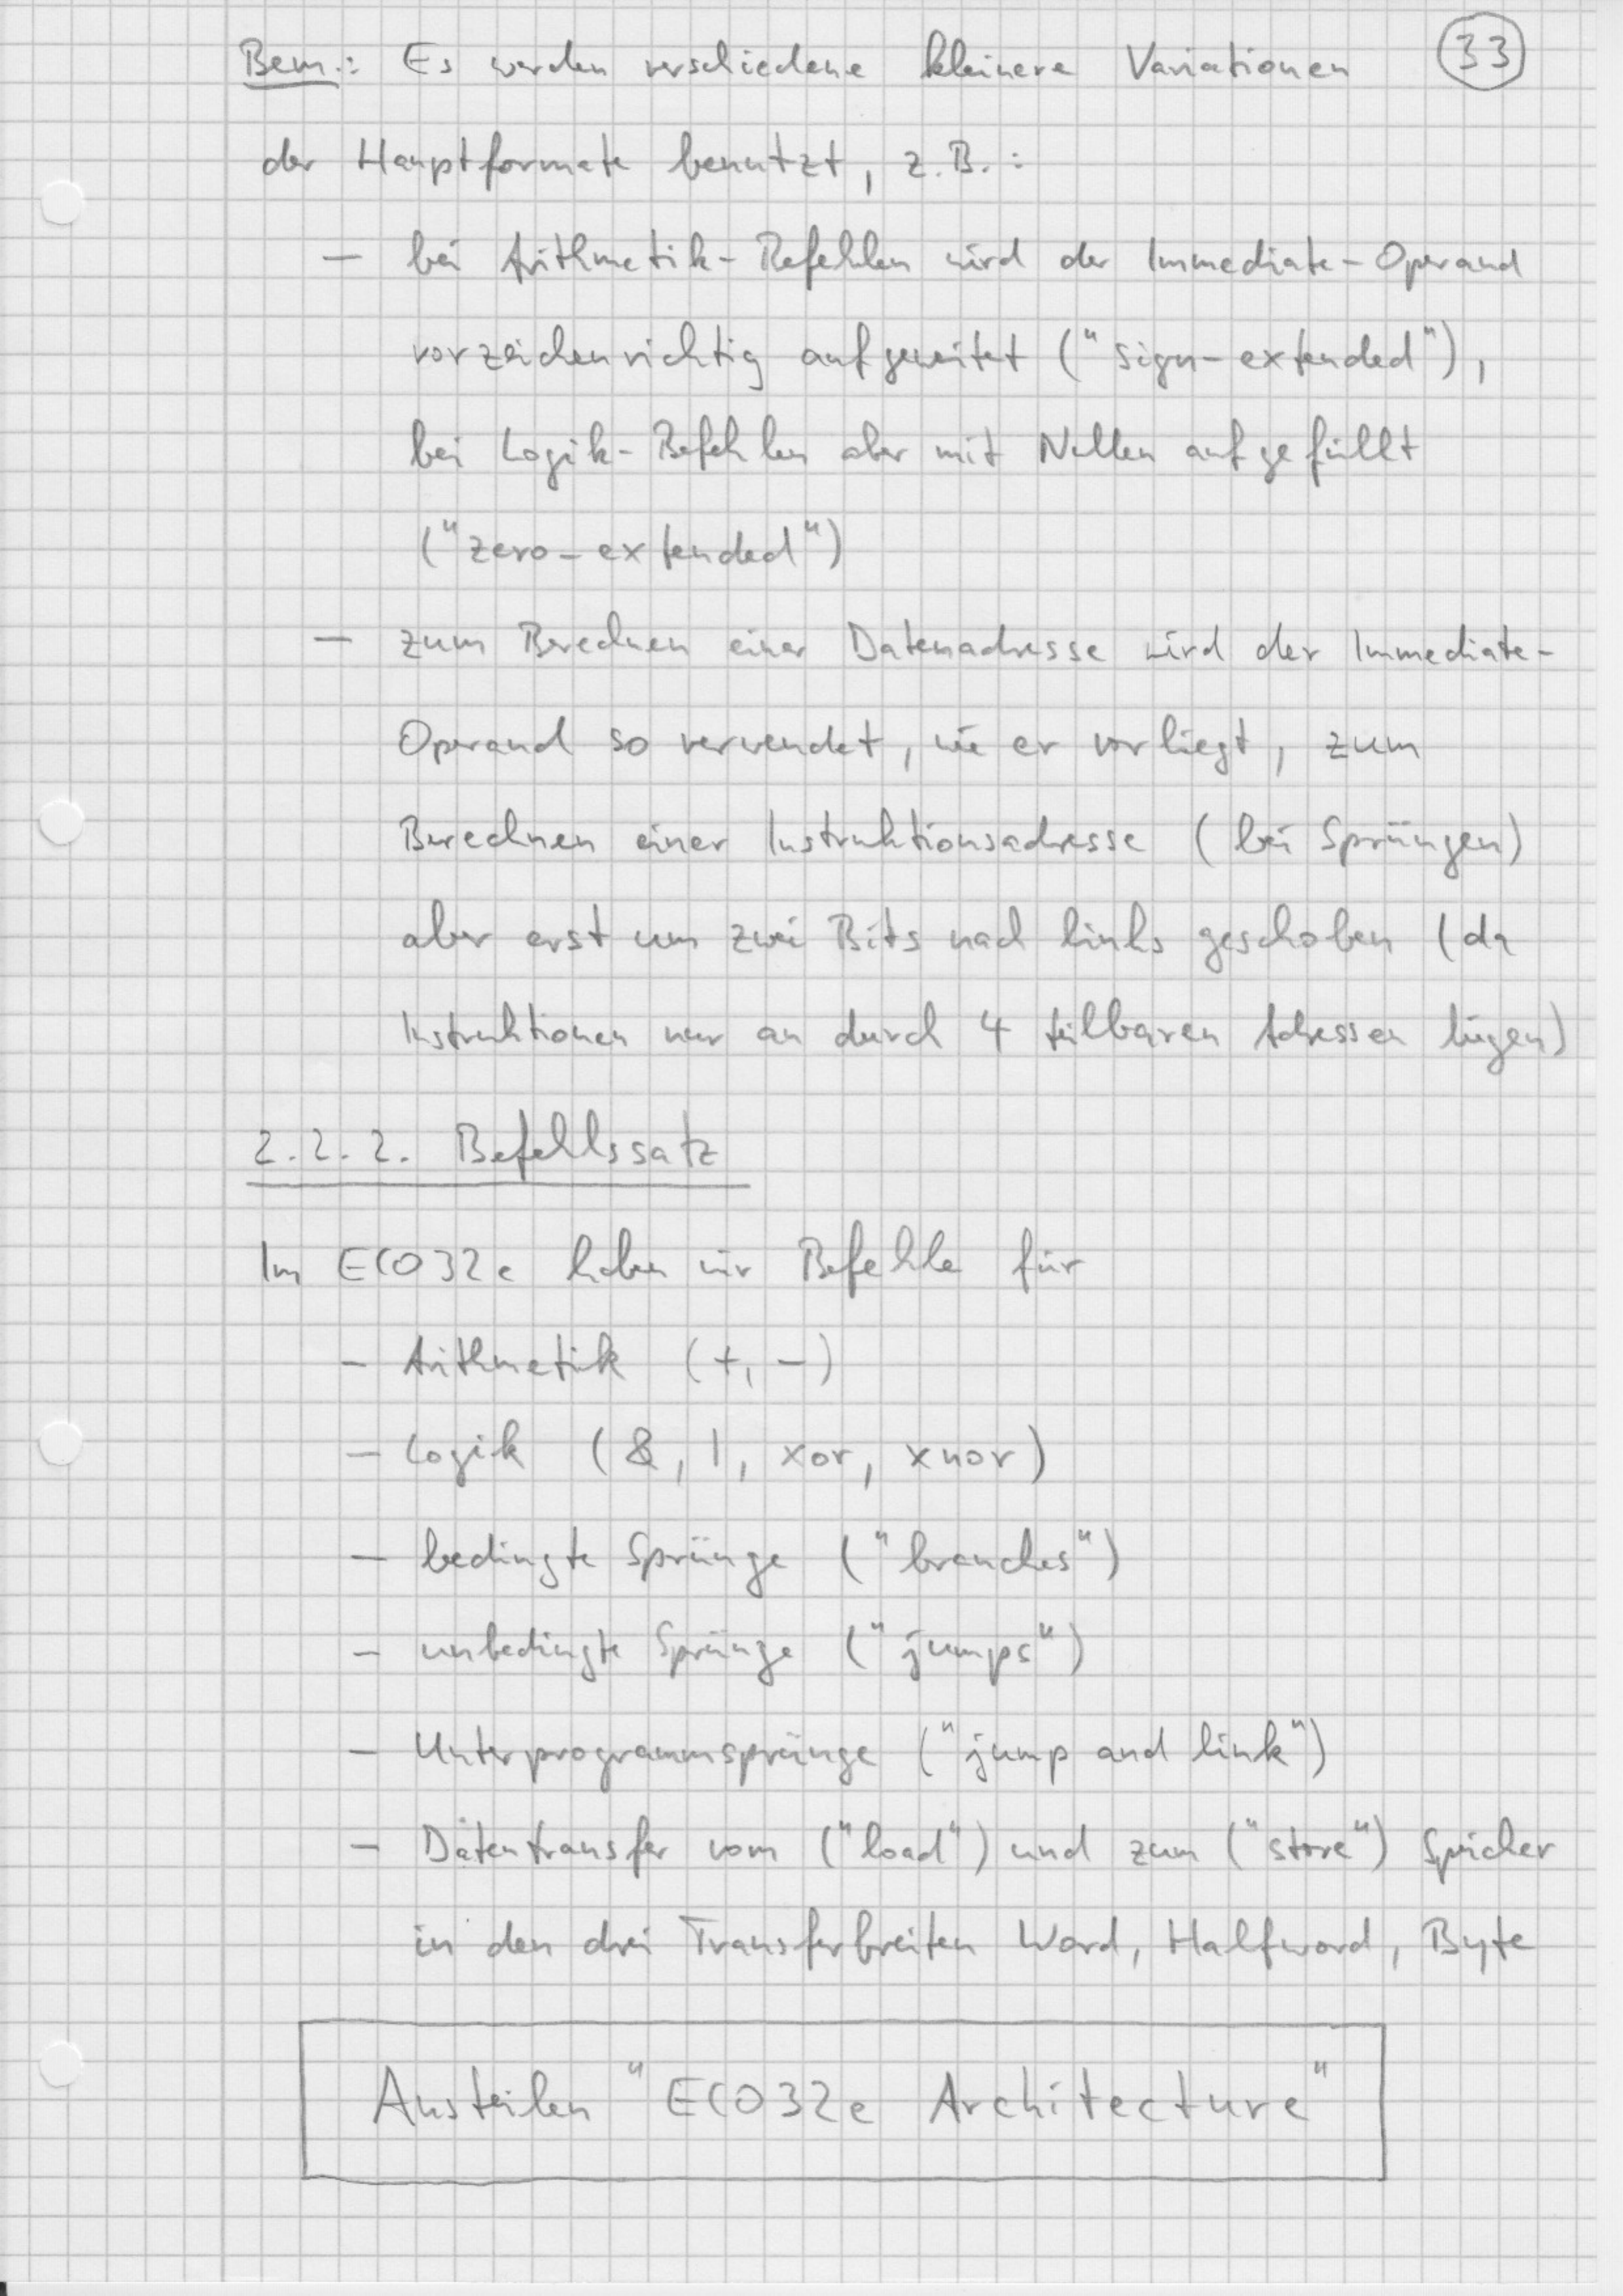 Bem.: Es werden verschiedene kleinere Variationen 33
der Hauptformate benutzt, z.B.:
— bei Arithmetik-Befehlen wird der Immediate-Operand
vorzeichenrichtig aufgeweitet ("sign-extended"),
bei Logik-Befehlen aber mit Nullen aufgefüllt
("zero-extended")
— zum Berechnen einer Datenadresse wird der Immediate-
Operand so verwendet, wie er vorliegt, zum
Berechnen einer Instruktionsadresse (bei Sprüngen)
aber erst um zwei Bits nach links geschoben (da
Instruktionen nur an durch 4 teilbaren Adressen liegen)
2.2.2. Befehlssatz
Im ECO32e haben wir Befehle für
— Arithmetik (+, −)
— Logik (&, |, xor, xnor)
— bedingte Sprünge ("branches")
— unbedingte Sprünge ("jumps")
— Unterprogrammsprünge ("jump and link")
— Datentransfer vom ("load") und zum ("store") Speicher
in den drei Transferbreiten Word, Halfword, Byte
Austeilen "ECO32e Architecture"